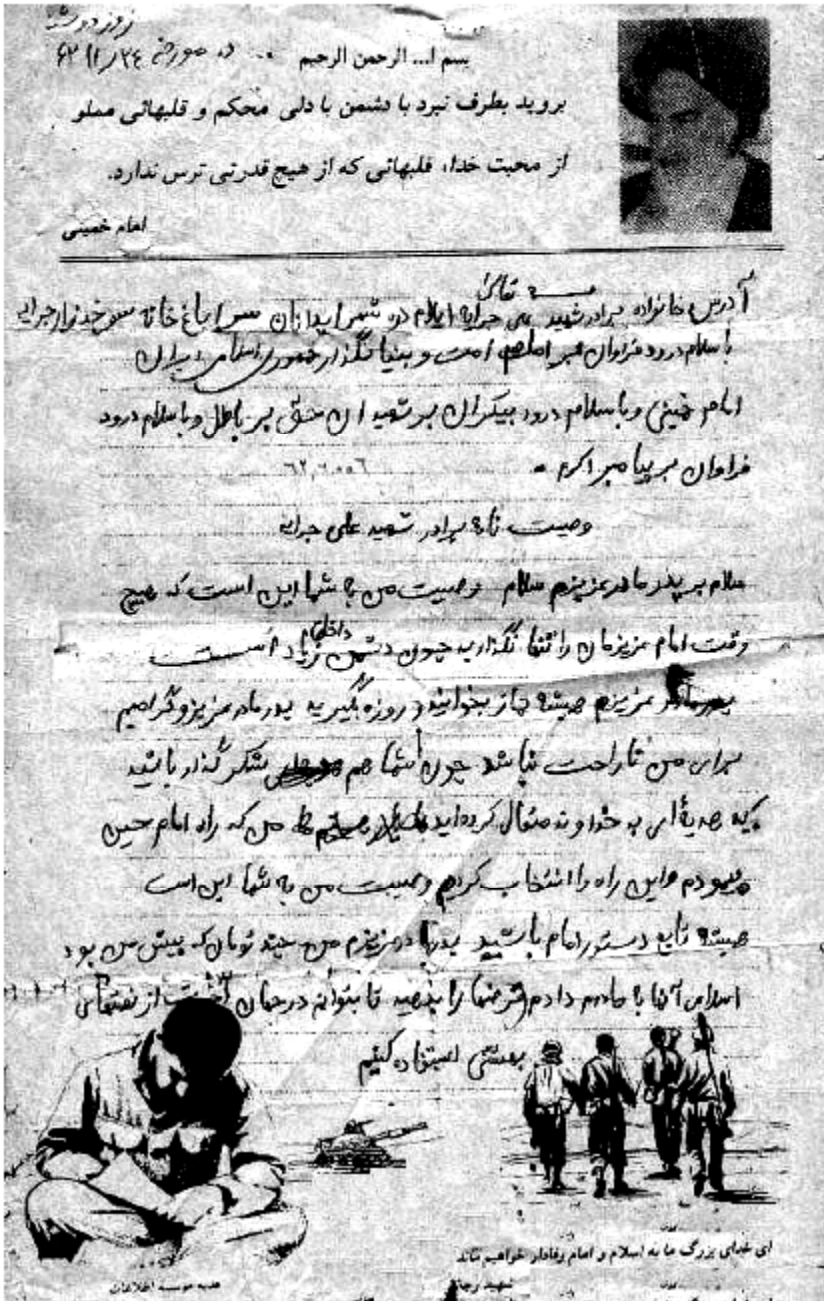 روز دوشنبه
در مورخ ۶۲/۱/۲۴
بسم ا... الرحمن الرحیم
بروید بطرف نبرد با دشمن با دلی محکم و قلبهائی مملو
از محبت خدا، قلبهائی که از هیچ قدرتی ترس ندارد.
امام خمینی
آدرس خانواده برادر شهید علی ایلام در شهر
با سلام درود فراوان بر امام امت و بنیانگذار جمهوری اسلامی ایران
امام خمینی و با سلام درود بیکران بر شهیدان حق بر باطل و با سلام درود
فراوان بر پیامبر اکرم
وصیت نامه برادر شهید علی
سلام بر پدر مادر عزیزم سلام وصیت من به شما این است که هیچ
وقت امام عزیزمان را تنها نگذارید چون دشمن زیاد است
پدر مادر عزیزم همیشه نماز بخوانید و روزه بگیرید پدر مادر عزیز و گرامیم
برای من ناراحت نباشد چون شما هم شکر گذار باشید
که هدیه‌ای به خداوند متعال کرده‌اید من که راه امام حسین
پیمودم و این راه را انتخاب کردم وصیت من به شما این است
همیشه تابع دستور امام باشید عزیزم من چند تومان که پیش من بود
آنها به مادرم دادم را بدهید تا بتوانم در جهان آخرت از نعمتهای
بهشتی استفاده کنیم
ای خدای بزرگ ما به اسلام و امام وفادار خواهیم ماند
شهید
هدیه موسسه اطلاعات